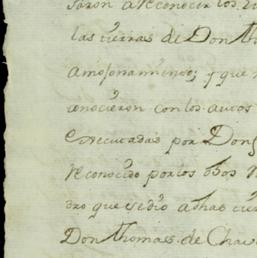 saron a reconocer los
las tierras de Don Tho
amojonamientos; y que
conocieron con los autos
executadas por Don
reconocido por los dhos
dro que se dio a dhas tier
Don Thomas de Chav